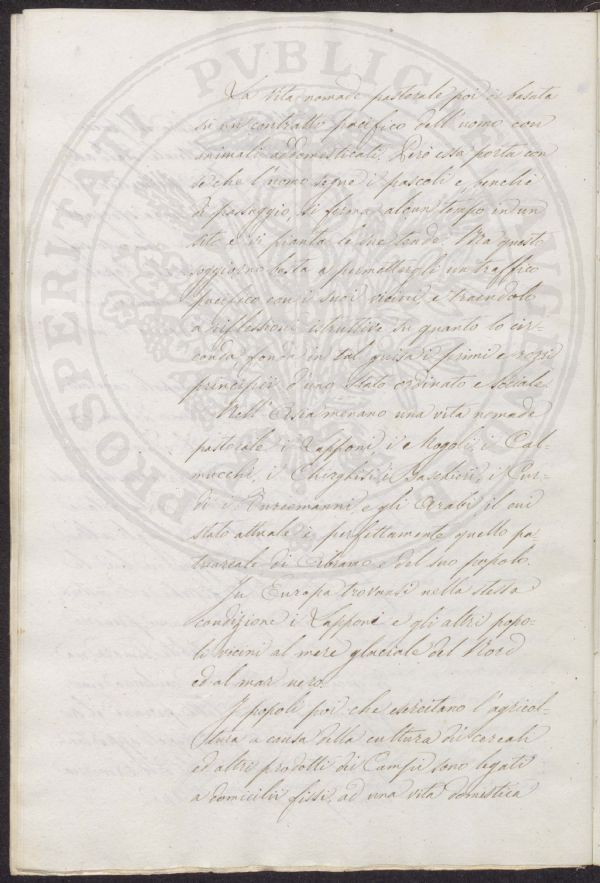 La vita nomade pastorale poi è basata
su un contratto pacifico dell'uomo con
animali addomesticati. Però essa porta con
sè che l'uomo segue i pascoli e, benchè
di passaggio, si ferma alcun tempo in un
sito e vi pianta le sue tende. Ma questo
soggiorno basta a permettergli un traffico
pacifico con i suoi vicini, e traendolo
a riflessioni istruttive su quanto lo cir-
conda, fonda in tal guisa i primi e rozzi
principii d'uno stato ordinato e sociale.
Nell'Asia menano una vita nomade
pastorale i Lapponi, i Mogoli, i Cal-
mucchi, i Chirghisi, i Baschieri, i Cur-
di i Turcomanni, e gli Arabi il cui
stato attuale è perfettamente quello pa-
triarcale di Abramo e del suo popolo.
In Europa trovansi nella stessa
condizione i Lapponi e gli altri popo-
li vicini al mare glaciale del Nord
ed al mar nero.
I popoli poi che esercitano l'agricol-
tura a causa della cultura di cereali
ed altri prodotti dei Campi sono legati
a domicilii fissi, ad una vita domestica
PROSPERITATI PVBLIC AVGENDAE